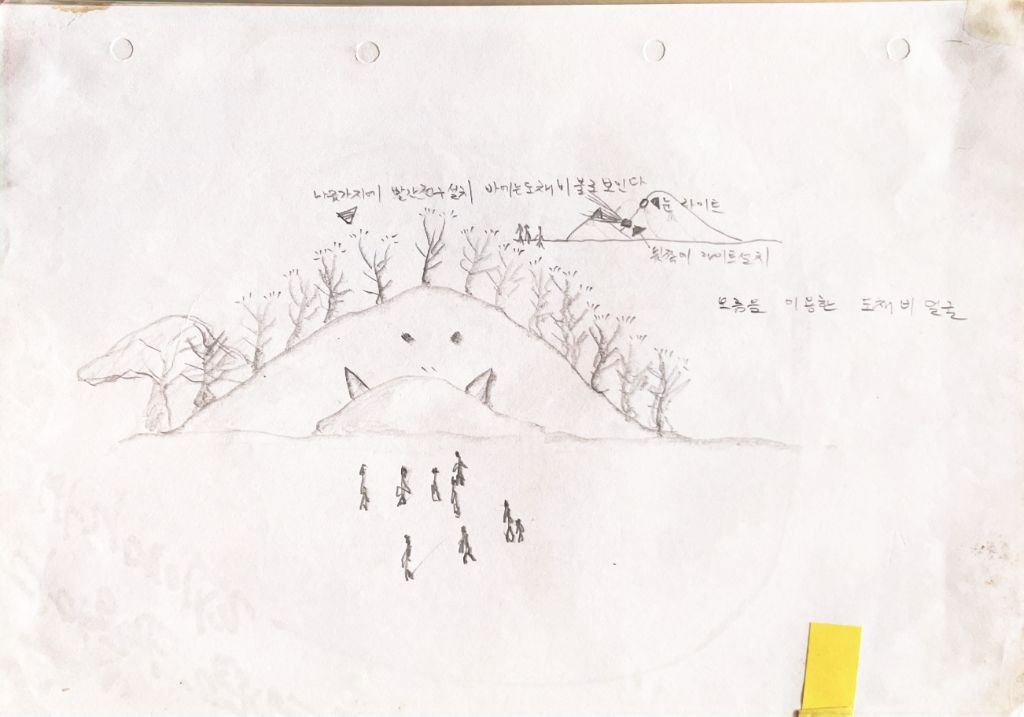 나무가지에 빨간전구설치 밤에는도채비불로보인다
눈 라이트
뒷쪽에 라이트설치
오름을 이용한 도채비 얼굴